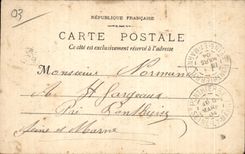 03
RÉPUBLIQUE FRANÇAISE
CARTE POSTALE
Ce côté est exclusivement réservé à l'adresse
Monsieur Normand
A St Fargeau
Par Ponthierry
Seine et Marne